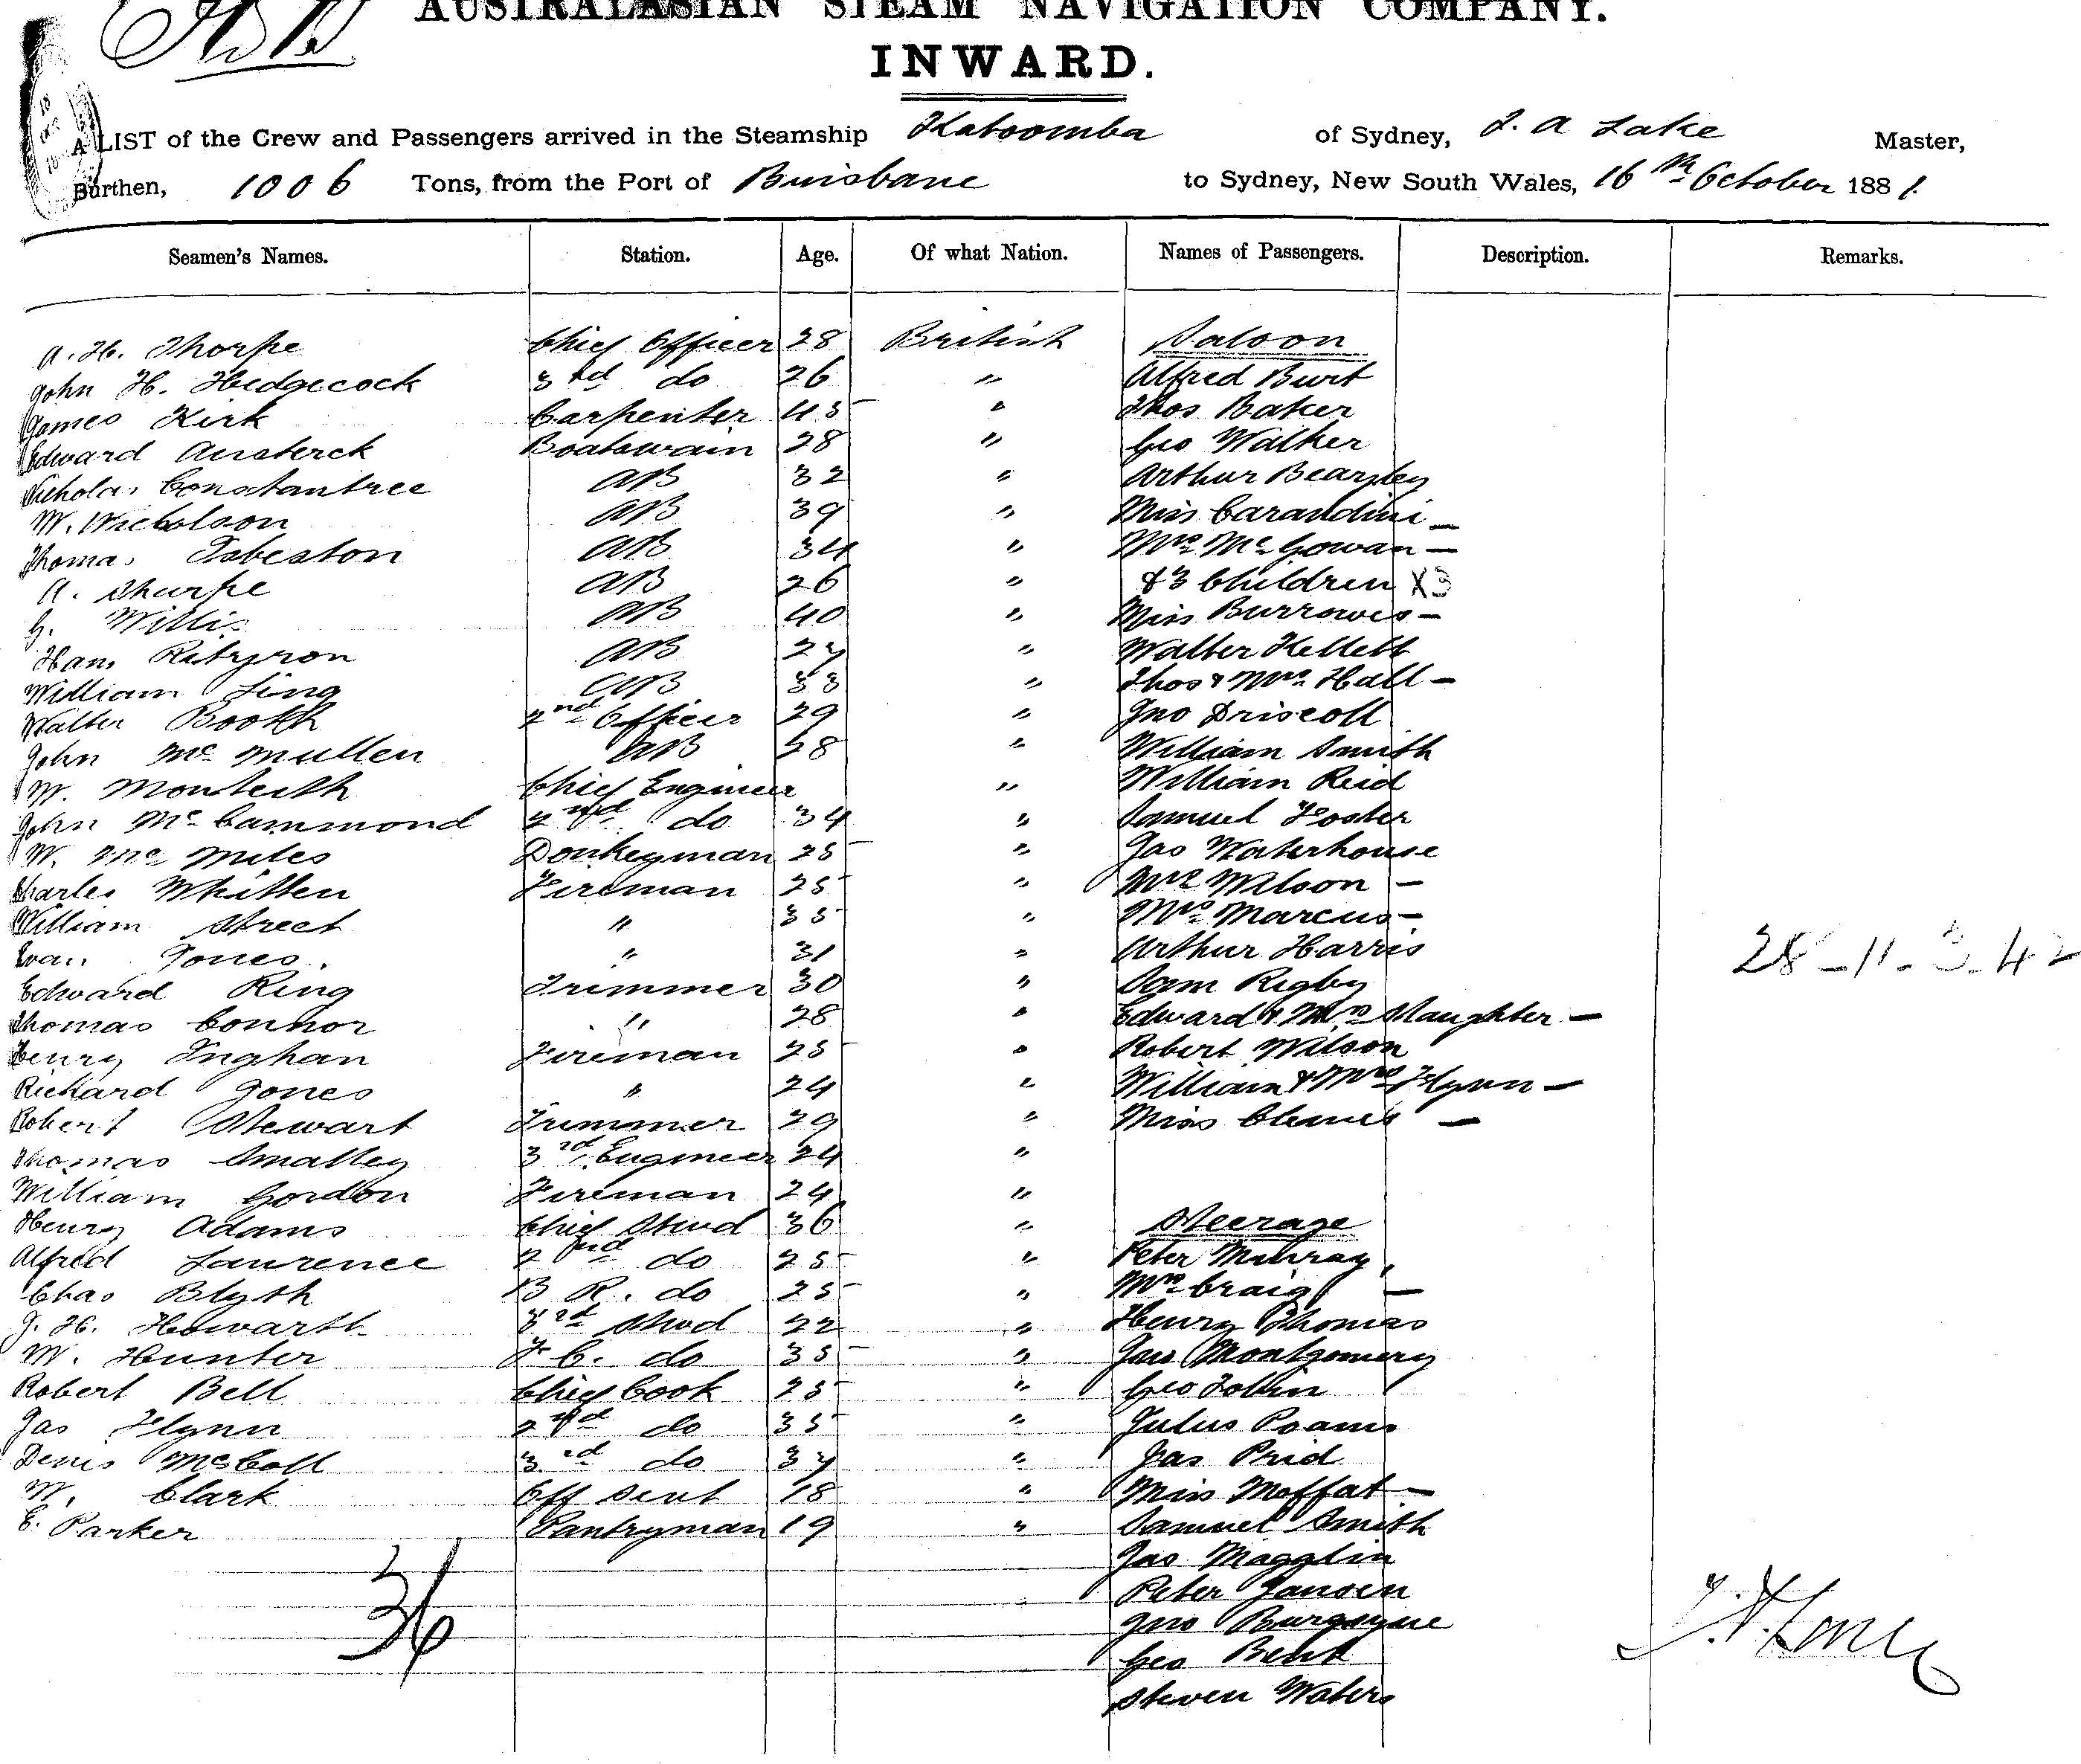 AUSTRALASIAN STEAM NAVIGATION COMPANY.
INWARD.
A LIST of the Crew and Passengers arrived in the Steamship Katoomba of Sydney, J. A Lake Master,
Burthen, 1006 Tons, from the Port of Brisbane to Sydney, New South Wales, 16th October 1881.
Seamen's Names. Station. Age. Of what Nation. Names of Passengers. Description. Remarks.
A. H. Thorpe Chief Officer 28 British Saloon
John H. Hedgecock 3rd do 26 " Alfred Burt
James Kirk Carpenter 45 " Thos Baker
Edward Boatswain 28 " Geo Walker
Nicholas Constantree AB 32 " Arthur Bearsley
W. Nicholson AB 39 " Miss Carandini –
Thomas AB 34 " Mrs McGowan –
A. Sharpe AB 26 " & 3 Children X3
G. Willis AB 40 " Miss Burrowes –
Hans AB 27 " Walter Kellett
William Ling AB 33 " Thos & Mrs Hall –
Walter Booth 2nd Officer 29 " Jno Driscoll
John McMullen AB 38 " William Smith
W. Monteith Chief Engineer " William Reid
John McCammond 2nd do 34 " Samuel Foster
W. Mc Miles Donkeyman 25 " Jas Waterhouse
Charles Whitten Fireman 25 " Mrs Wilson –
William Street " 35 " Mrs Marcus –
Evan Jones. " 31 " Arthur Harris
Edward Ring Trimmer 30 " Sam Rigby
Thomas Connor " 28 " Edward & Mrs Slaughter –
Henry Inghan Fireman 25 " Robert Wilson
Richard Jones " 24 " William & Mrs Flynn –
Robert Stewart Trimmer 29 " Miss Cleaves –
Thomas Smalley 3rd Engineer 24 "
William Gordon Fireman 24 "
Henry Adams Chief Stwd 36 " Steerage
Alfred Laurence 2nd do 25 " Peter Murray
Chas Blyth B R. do 25 " Mrs Craig –
J. H. Howarth 3rd Stwd 22 " Henry Thomas
W. Hunter F C. do 35 " Jas Montgomery
Robert Bell Chief Cook 25 " Geo Tobin
Jas Flynn 2nd do 35 " Julus
Denis McColl 3rd do 37 " Jas Prid
W. Clark Off Sevt 18 " Miss Moffat –
E. Parker Pantryman 19 " Samuel Smith
Jas Magglin
Peter Jansen
36 Jno Burgoyne
Geo Bent
Steven Waters